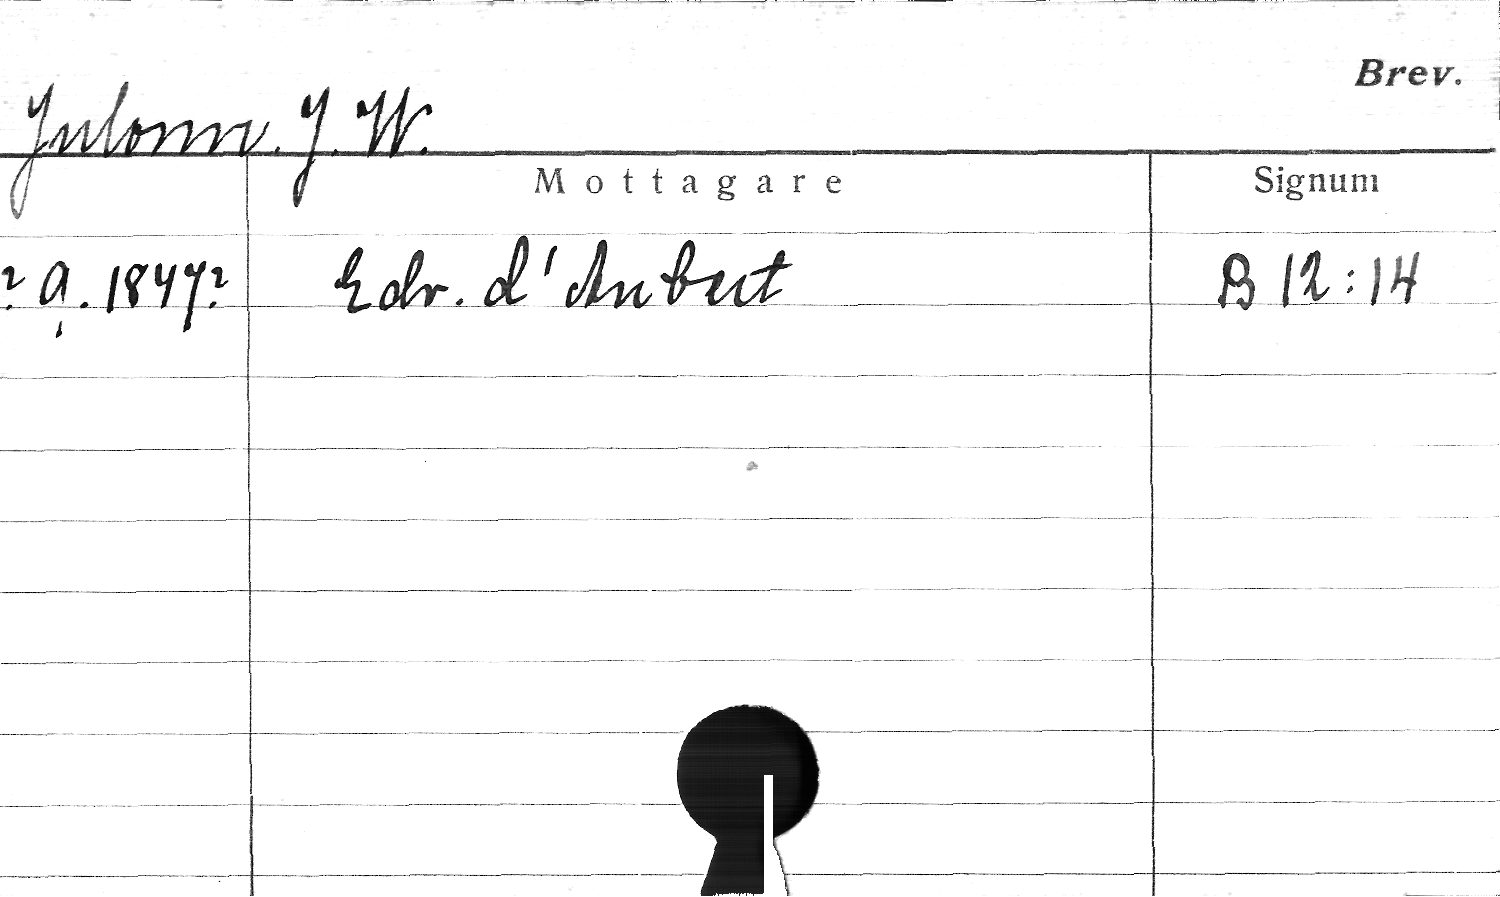 Brev.
Julonn. J. W.
Mottagare Signum
? a. 1847? Edv. d'Aubert B 12:14